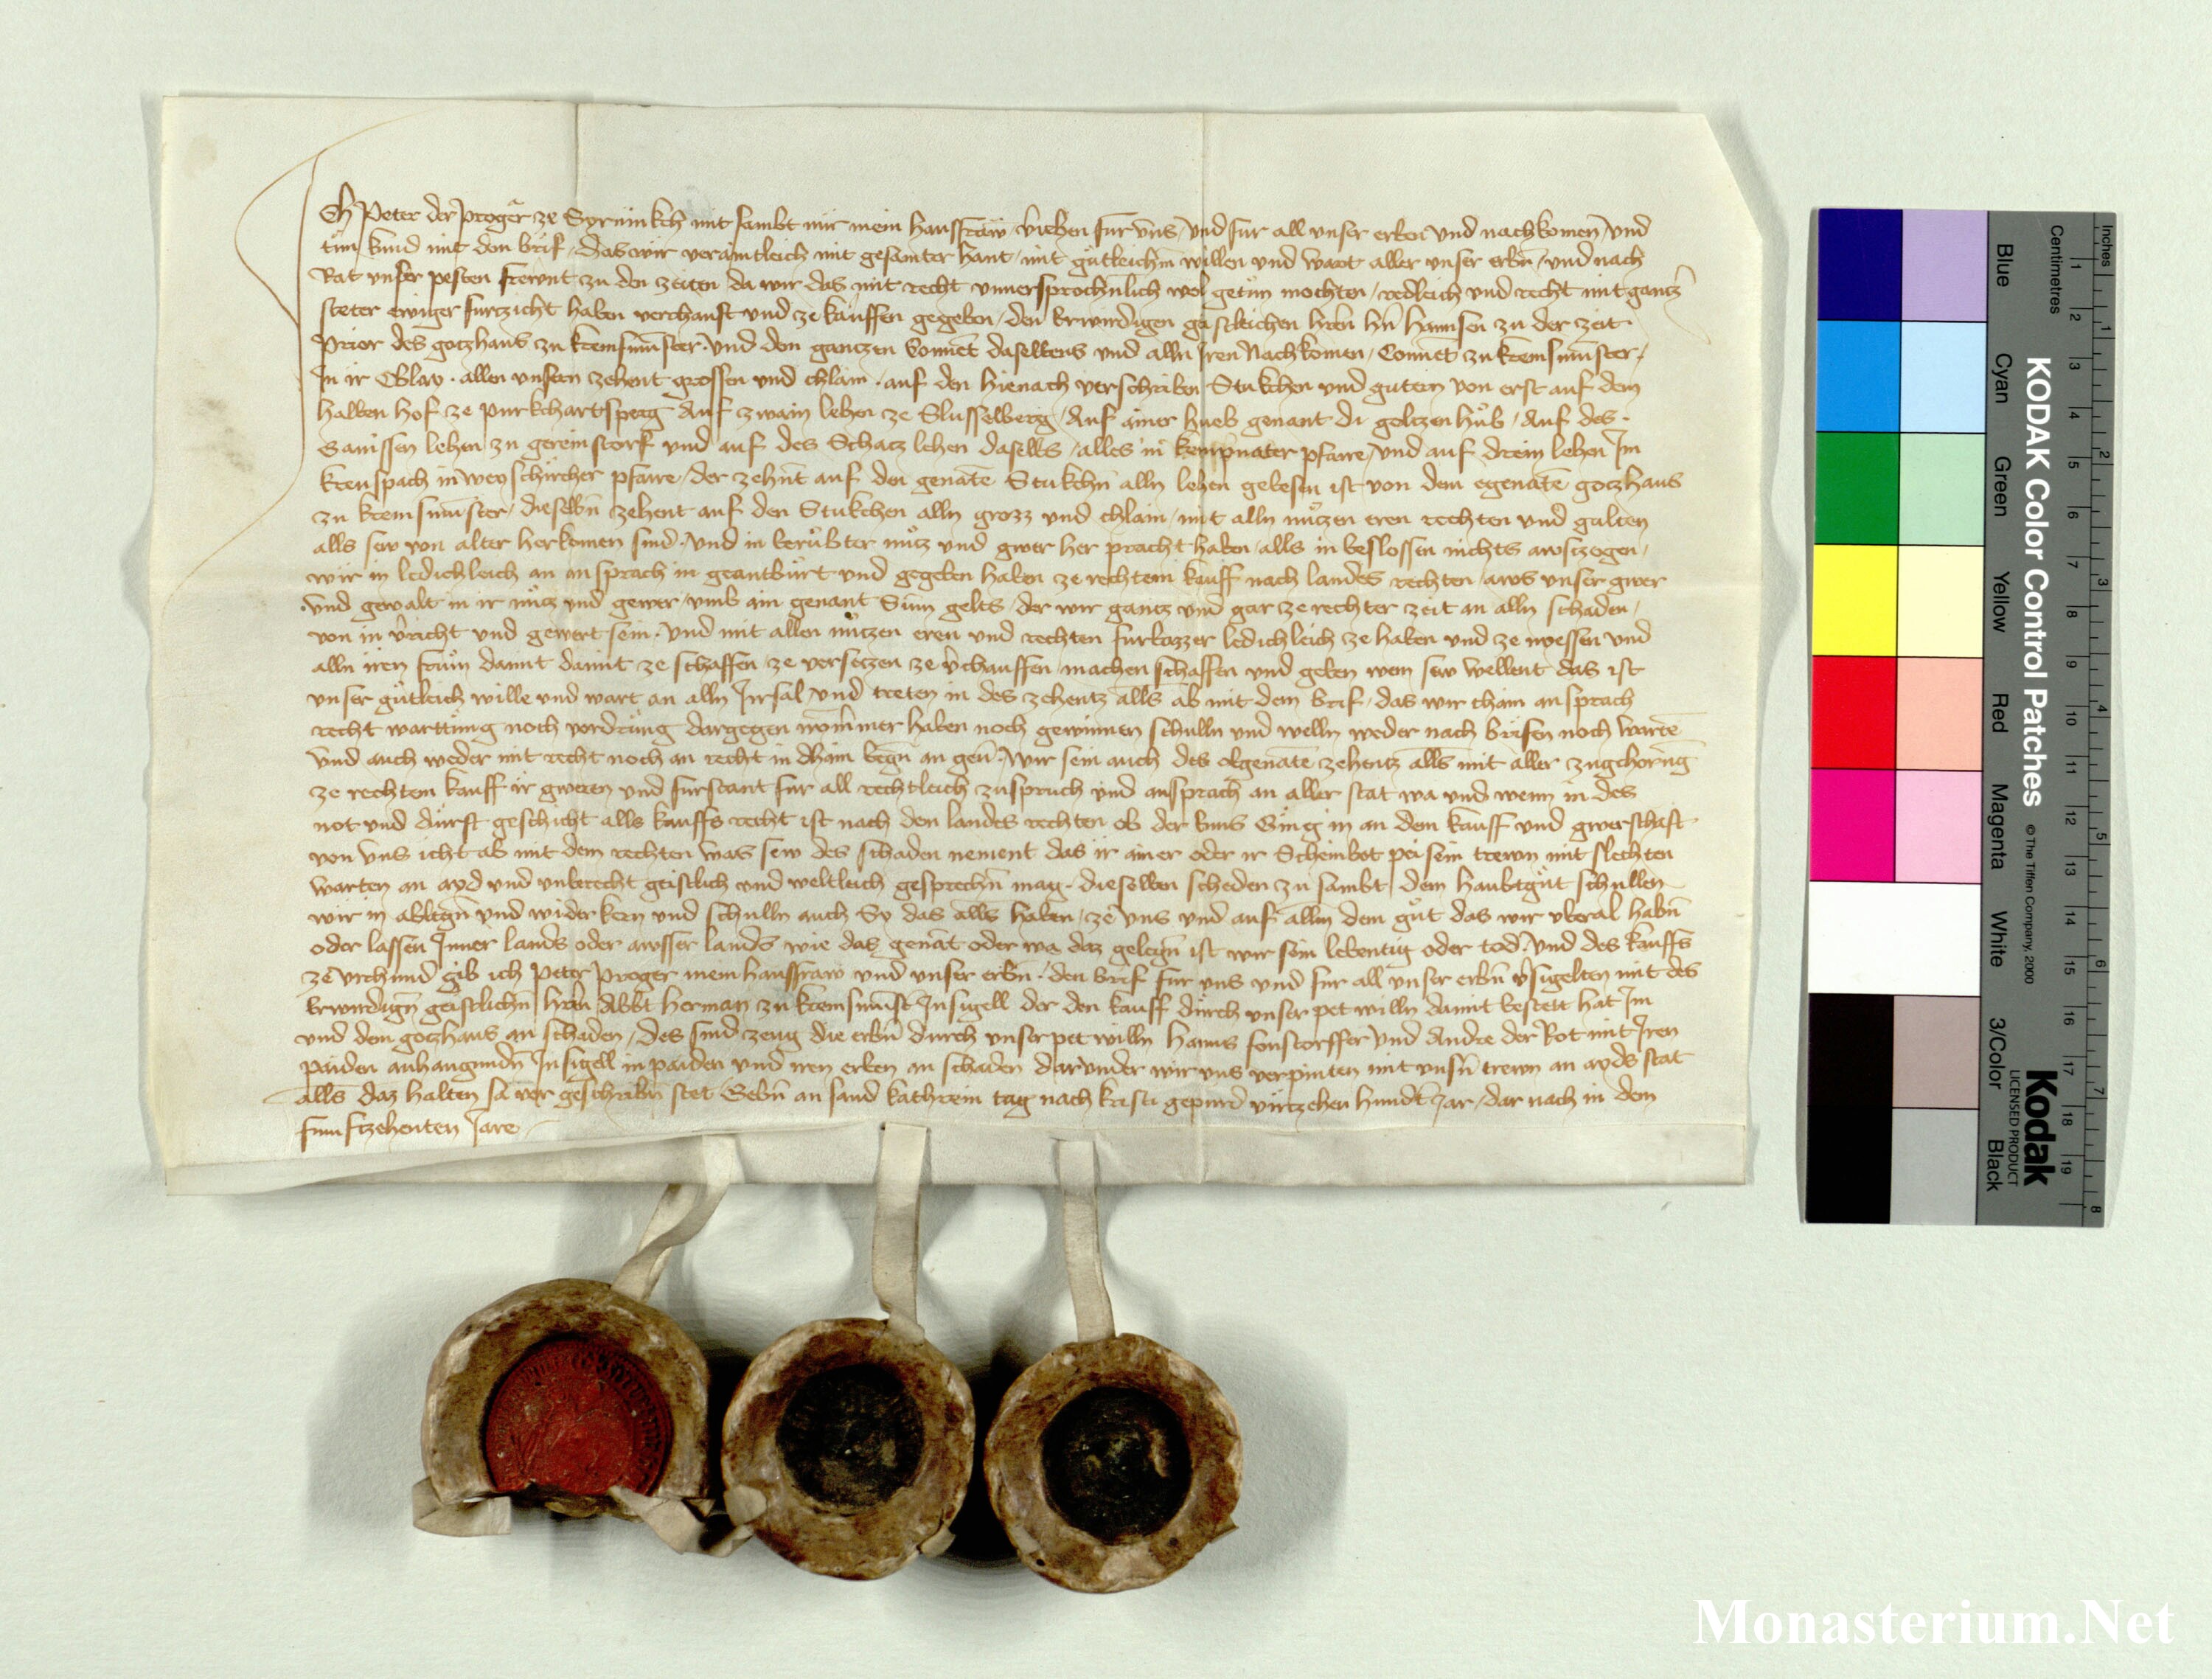 Ich Peter der Proger ze Syrnikch mit sambt mir mein hausfraw v̈riehen fur vns vnd fur all vnser erben vnd nachkomen vnd
tün kund mit den brif das wir veraintleich mit gesamter hant mit gütleichm willen vnd wart aller vnser erbñ vnd nach
Rat vnser pesten frewnt zu den zeiten da wir das mit recht vnuersprochnlich wol getün mochten redleich vnd recht mit gantz
steter ewiger furtzicht haben verchauft vnd ze kauffen gegeben den Erwirdigen gaistleichen hern hñ hannsen zu der zeit
Prior des gotzhaus zu kremsmūster vnd den gantzen Conuēt daselbens vnd alln Iren Nachkomen Conuēt zu kremsmūster
In ir Oblay allen vnsern zehent grossen vnd chlain auf den hienach verschriben Stukchen vnd gutern von erst auf dem
halben hof ze purkchartsperg Auf zwain lehen ze Slusselberg Auf ainer hueb genant di goltzen hüb Auf des
Ganissen lehen zu gereinstorf vnd auf des Schatz lehen daselbs alles in kempnater pfarre vnd auf drein lehen Im
krenspach in weyschircher pfarre der zehnt auf den genātē Stukchn alln lehen gebesen ist von dem egenātē gotzhaus
zu kremsmūster dieselbñ zehent auf den Stukchen alln grozz vnd chlain mit alln nützen eren rechten vnd gulten
alls sew von alter herkomen sind vnd in berübter nütz vnd gwer her pracht haben alls in beslossen nichts awsgzogen
wir in ledichleich an ansprach in geantburt vnd gegeben haben ze rechtem kauff nach landes rechten aws vnser gwer
vnd gewalt in ir nütz vnd gewer vmb ain genant Sūm gelts der wir gantz vnd gar ze rechter zeit an alln schaden
von in v̈richt vnd gewert sein vnd mit allen nützen eren vnd rechten furbazzer ledichleich ze haben vnd ze niessen vnd
alln iren frum damit damit ze schaffen ze versetzen ze v̈chauffen machen schaffen vnd geben wem sew wellent das ist
vnser gütleich wille vnd wart an alln Irrsal vnd treten in des zehentz alls ab mit dem brif das wir chain ansprach
recht warttung noch vordrung dargegen nymmer haben noch gewinnen schulln vnd welln weder nach brifen noch wartē
vnd auch weder mit recht noch an recht in dhain wegñ an geu̇ wir sein auch des obgenātē zehentz alls mit aller zugehorūg
ze rechtem kauff ir gweren vnd furstant fur all rechtleich zuspruch vnd ansprach an aller stat wa vnd wenn in des
not vnd dürft geschicht alls kauffs recht ist nach den landes rechten ob der Enns Gieng in an dem kauff vnd gwerschaft
von vns icht ab mit dem rechten was sew des schaden nement das ir ainer oder ir Scheinbot pei sein trewn mit slechten
warten an ayd vnd vnberecht geistlich vnd weltleich gesprechñ mag dieselben scheden zu sambt dem haubtgüt schullen
wir in ablegñ vnd widerkern vnd schulln auch Sy das alls haben ze vns vnd auf allm dem güt das wir vberal habñ
oder lassen Inner lands oder awsser lands wie das genāt oder wa daz gelegñ ist wir sein lebentig oder tod vnd des kauffs
ze vrchund gib ich Peter Proger mein hausfraw vnd vnser erbñ den brif fur vns vnd fur all vnser erbñ v̈sigelten mit des
Erwirdigñ geistlichñ hern Abbt herman zu kremsmūst Insigell der den kauff durch vnser pet willn damit bestett hat Im
vnd dem gotzhaus an schaden des sind zeug die erbñ durch vnser pet willn hanns sonstorffer vnd Andre der Rot mit Iren
paiden anhangundñ Insigell in paiden vnd iren erben an schaden darunder wir vns verpinten mit vnsñ trewn an ayds stat
alls daz halten sa vor geschribñ stet Gebñ an sand kathrein tag nach kristi gepurd viertzehen hundt Jar dar nach in dem
funftzehenten Jare
KODAK Color Control Patches
© The Tiffen Company, 2000
Kodak
LICENSED PRODUCT
Inches
Centimetres
Blue
Cyan
Green
Yellow
Red
Magenta
White
3/Color
Black
Monasterium.Net